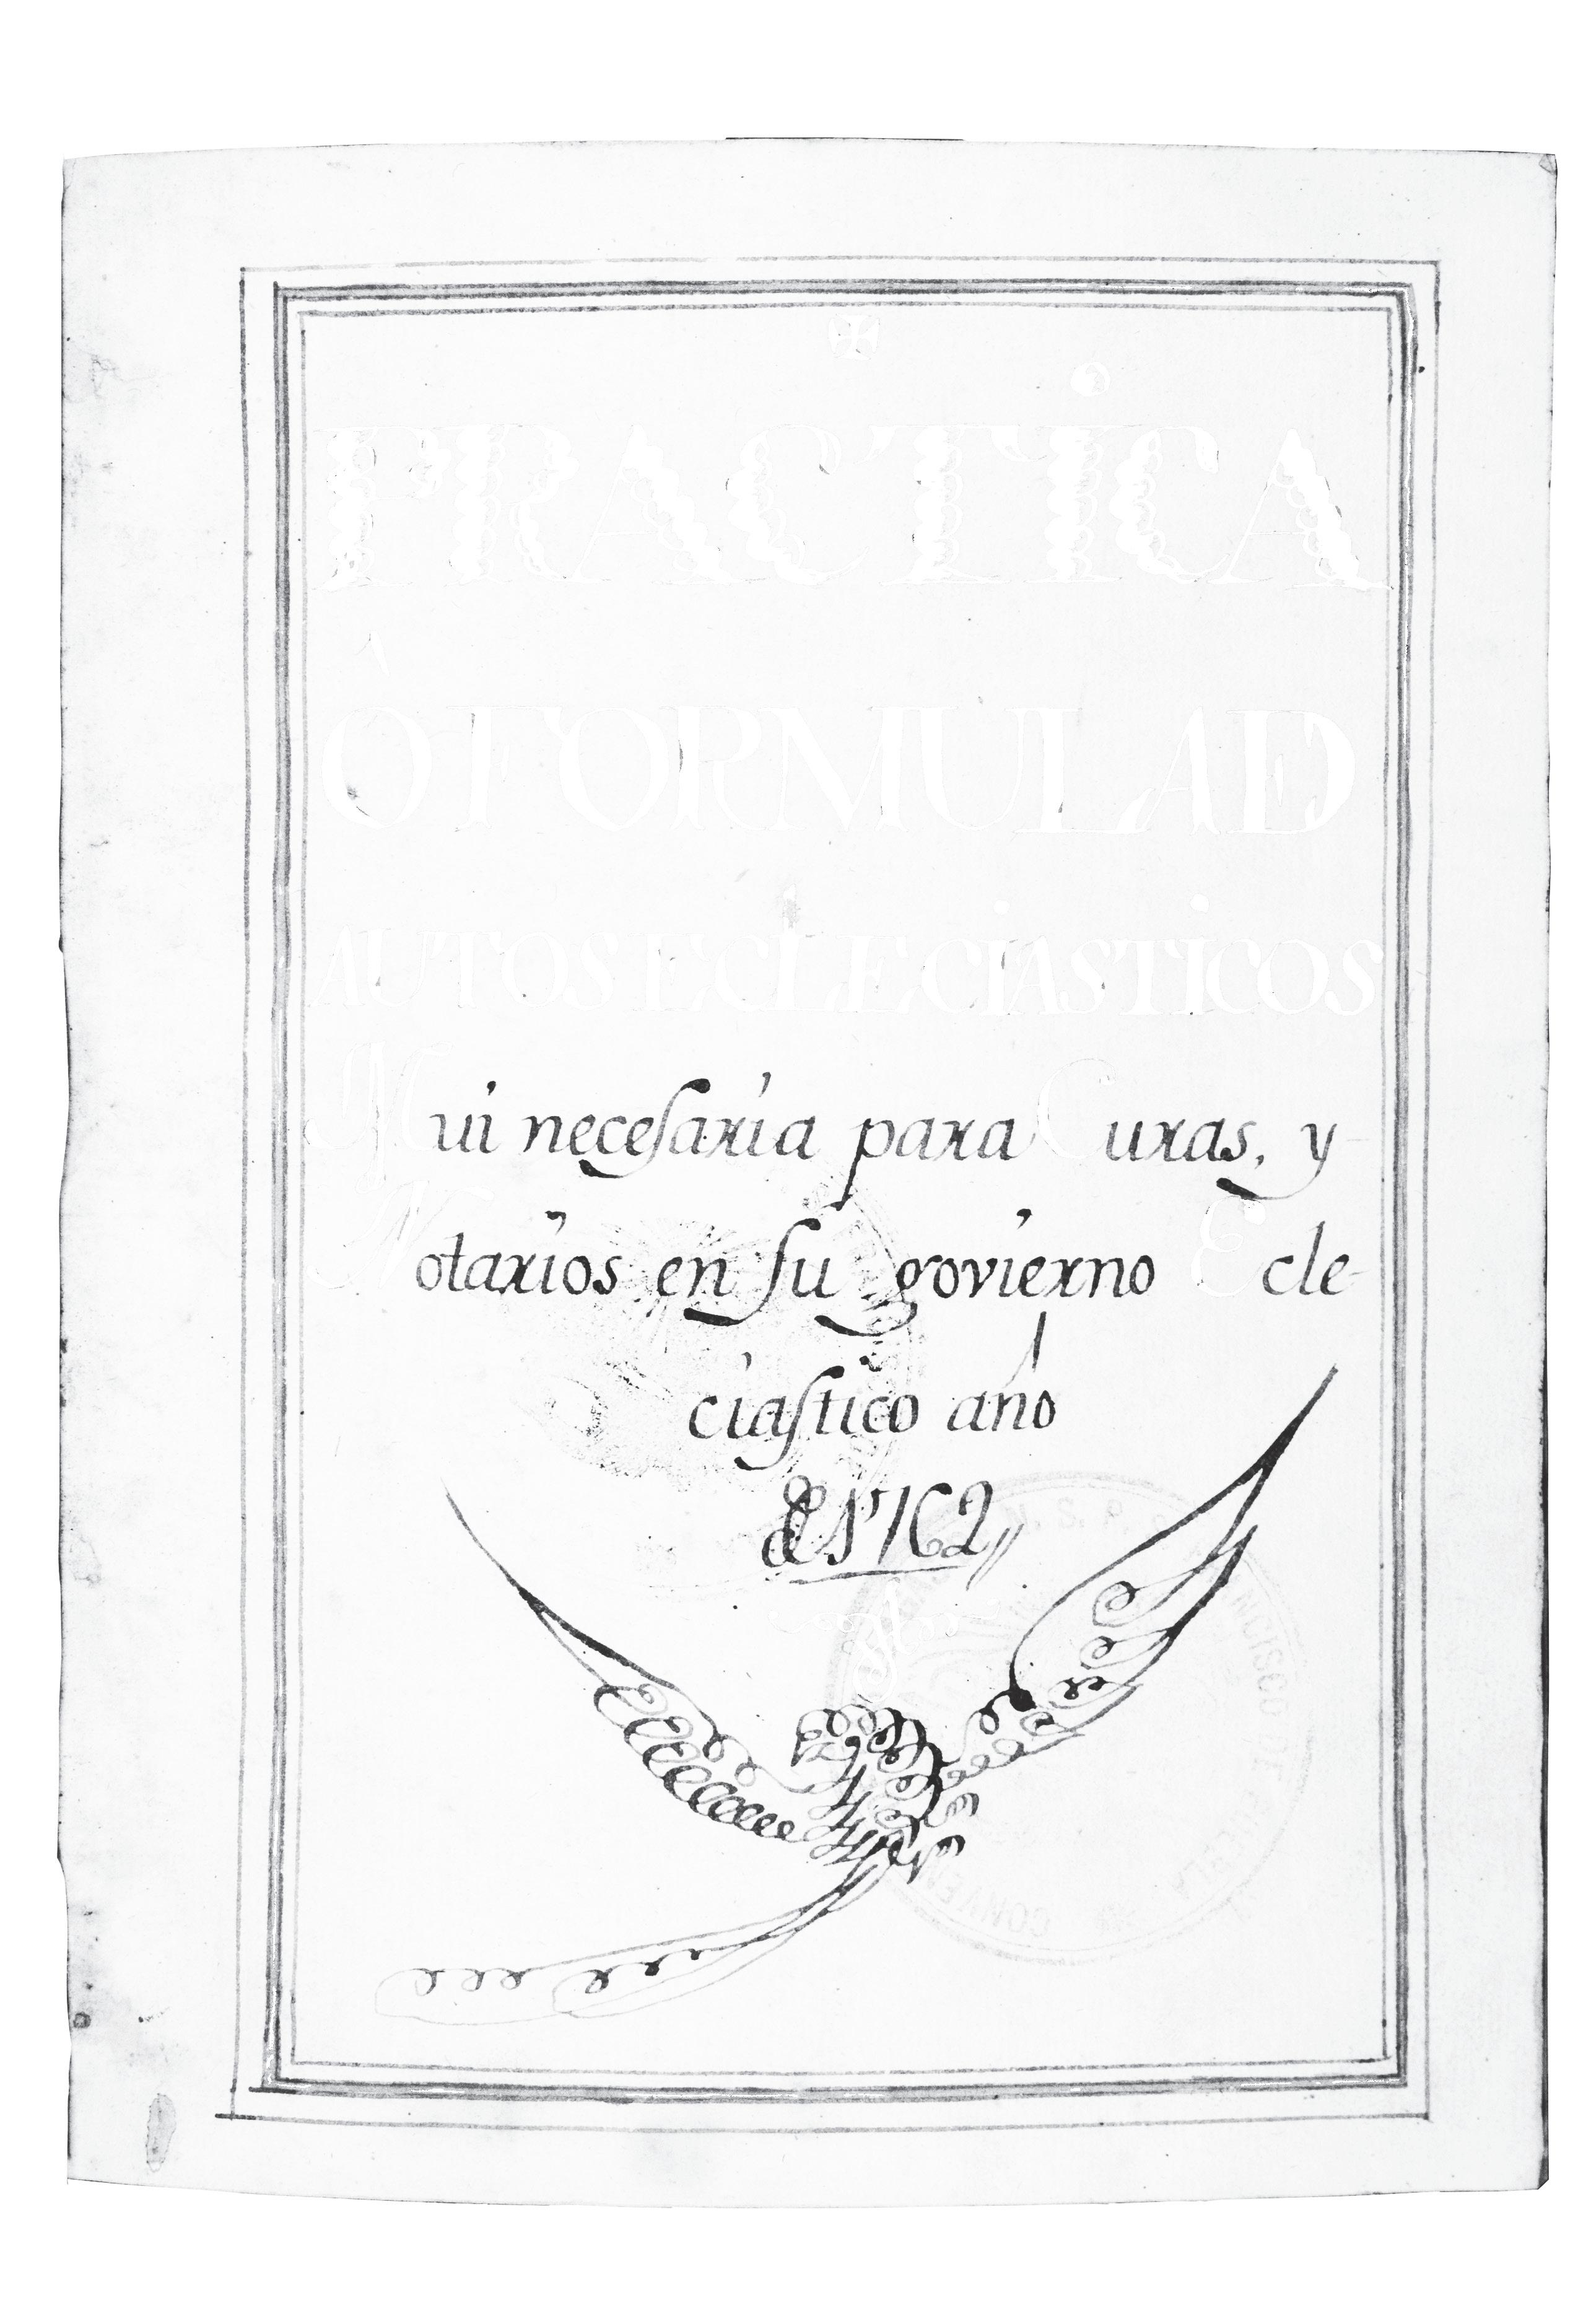 PRACTICA
Ó FORMULA D
AUTOS ECLECIASTICOS
Mui neceſaria para Curas, y
Notarios en ſu govierno Ecle-
ciaſtico año
de 1762
N. S. P. S. FRANCISCO DE PUEBLA
CONVEN